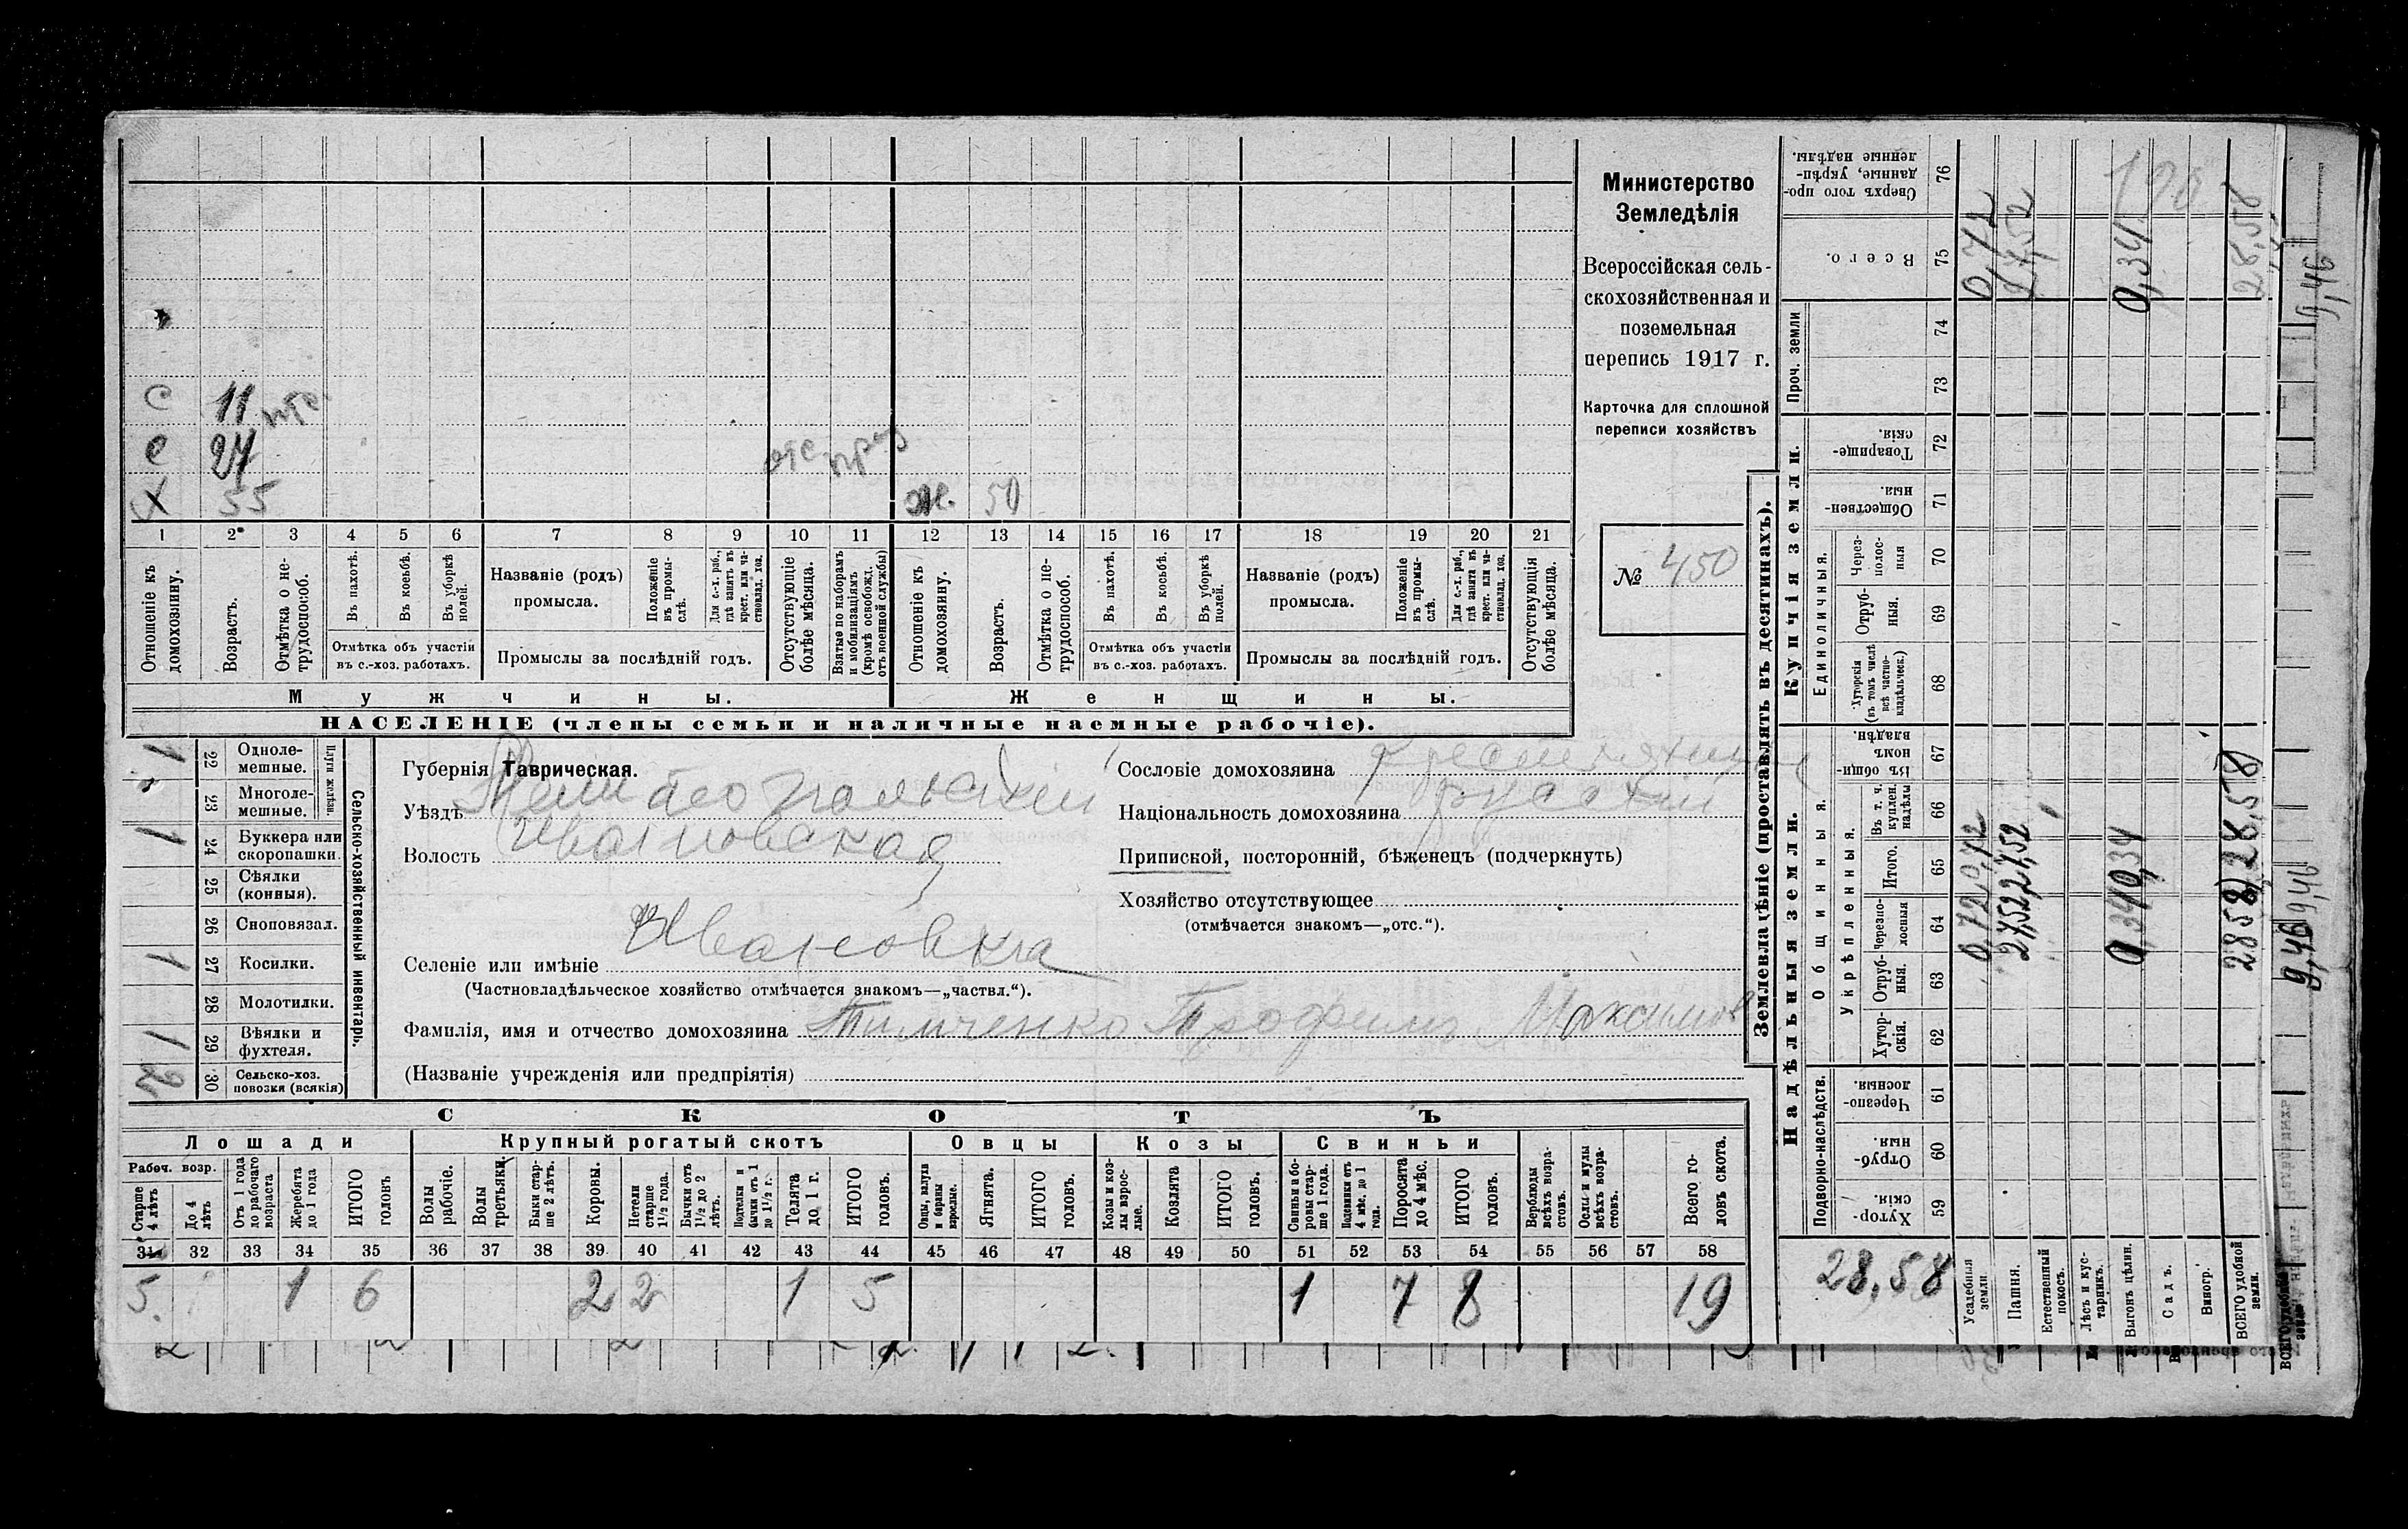 Министерство
Земледѣлія
Всероссійская сель-
скохозяйственная и
поземельная
перепись 1917 г.
Карточка для сплошной
переписи хозяйствъ
№ 450
С 11
С 27
Х 55 ж. 50
1 2 3 4 5 6 7 8 9 10 11 12 13 14 15 16 17 18 19 20 21
Отношеніе къ домохозяину.
Возрастъ.
Отмѣтка о не-трудоспособ.
Въ пахотѣ.
Въ косьбѣ.
Въ уборкѣ полей.
Отмѣтка объ участіи въ с.-хоз. работахъ.
Названіе (родъ) промысла.
Положеніе въ промы-слѣ.
Для с.-х. раб., гдѣ занятъ въ крест. или ча-стновлад. хоз.
Промыслы за послѣдній годъ.
Отсутствующіе болѣе мѣсяца.
Взятые по наборамъ и мобилизаціямъ (кромѣ освобожд. отъ военной службы)
Отношеніе къ домохозяину.
Возрастъ.
Отмѣтка о не-трудоспособ.
Въ пахотѣ.
Въ косьбѣ.
Въ уборкѣ полей.
Отмѣтка объ участіи въ с.-хоз. работахъ.
Названіе (родъ) промысла.
Положеніе въ промы-слѣ.
Для с.-х. раб., гдѣ занята въ крест. или ча-стновлад. хоз.
Промыслы за послѣдній годъ.
Отсутствующія болѣе мѣсяца.
Мужчины. Женщины.
НАСЕЛЕНІЕ (члены семьи и наличные наемные рабочіе).
Сельско-хозяйственный инвентарь.
Плуги желѣзн.
1 22 Одноле-мешные.
23 Многоле-мешные.
1 24 Буккера или скоропашки.
25 Сѣялки (конныя).
26 Сноповязал.
1 27 Косилки.
28 Молотилки.
1 29 Вѣялки и фухтеля.
2 30 Сельско-хоз. повозки (всякія)
Губернія Таврическая.
Уѣздъ Мелитопольскій
Волость Ивановская
Селеніе или имѣніе Ивановка
(Частновладѣльческое хозяйство отмѣчается знакомъ—„частвл.“).
Фамилія, имя и отчество домохозяина Тимченко Трофимъ Максимов
(Названіе учрежденія или предпріятія)
Сословіе домохозяина крестьянинъ
Національность домохозяина русскій
Припиской, посторонній, бѣженецъ (подчеркнуть)
Хозяйство отсутствующее
(отмѣчается знакомъ—„отс.“).
СКОТЪ
Лошади Крупный рогатый скотъ Овцы Козы Свиньи
Рабоч. возр.
Старше 4 лѣтъ
До 4 лѣтъ
Отъ 1 года до рабочаго возраста
Жеребята до 1 года
ИТОГО головъ
Волы рабочіе.
Волы третьяки.
Быки стар-ше 2 лѣтъ.
Коровы.
Нетели старше 1½ года.
Бычки отъ 1½ до 2 лѣтъ.
Подтелки и бычки отъ 1 до 1½ г.
Телята до 1 г.
ИТОГО головъ.
Овцы, валухи и бараны взрослые.
Ягнята.
ИТОГО головъ.
Козы и коз-лы взрос-лые.
Козлята
ИТОГО головъ.
Свиньи и бо-ровы стар-ше 1 года.
Подсвинки отъ 4 мѣс. до 1 года.
Поросята до 4 мѣс.
ИТОГО головъ.
Верблюды всѣхъ возра-стовъ.
Ослы и мулы всѣхъ возра-стовъ.
Всего го-ловъ скота.
31 32 33 34 35 36 37 38 39 40 41 42 43 44 45 46 47 48 49 50 51 52 53 54 55 56 57 58
5 1 6 2 2 1 5 1 7 8 19
Землевладѣніе (проставлять въ десятинахъ).
Надѣльныя земли. Купчія земли. Проч. земли
Подворно-наслѣдств.
Общинныя.
Укрѣпленныя.
Единоличныя.
Хутор-скія. 59
Отруб-ныя. 60
Черезпо-лосныя. 61
Хутор-скія. 62
Отруб-ныя. 63
Черезпо-лосныя 64
Итого. 65
Въ т. ч. куплен. надѣлы 66
Въ общин-номъ владѣн. 67
Хуторскія (въ томъ числѣ всѣ частно-владѣльческ.) 68
Отруб-ныя. 69
Через-полос-ныя 70
Обществен-ныя. 71
Товарище-скія. 72
73
74
Всего. 75
Сверхъ того про-данные, укрѣп-ленные надѣлы. 76
28,58
Усадебная земли. 0,72 0,72 0,72
Пашня. 27,52 27,52 27,52
Естественный покосъ.
Лѣсъ и кус-тарникъ.
Выгонъ цѣлин. 0,34 0,34 0,34
Садъ.
Виногр.
ВСЕГО удобной земли. 28,58 28,58 28,58
9,46 9,46 9,46